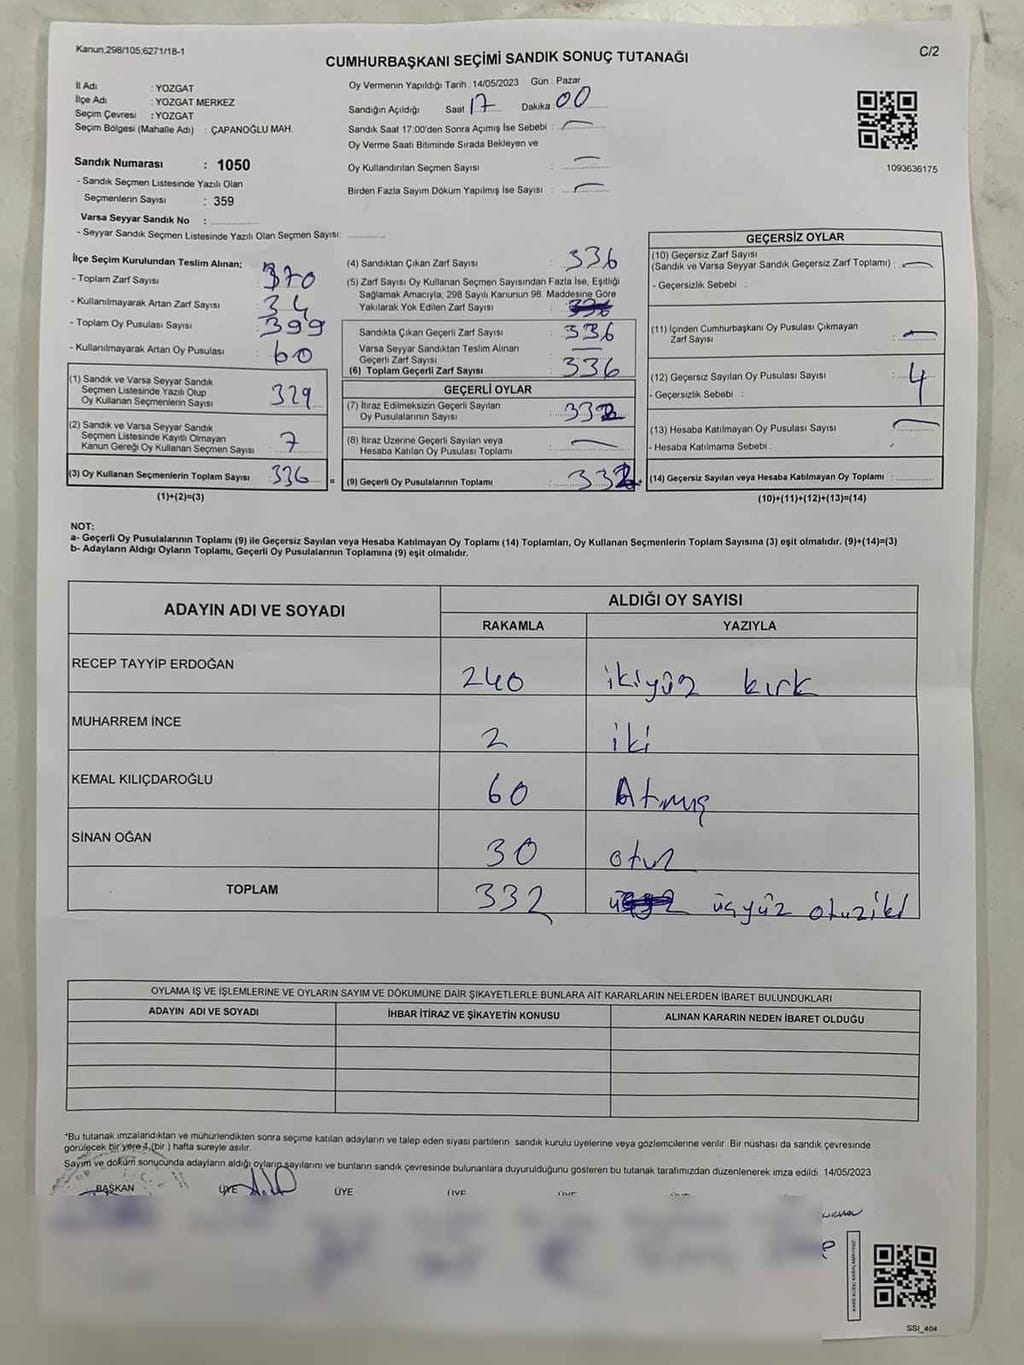 Kanun.298/105.6271/18-1
C/2
CUMHURBAŞKANI SEÇİMİ SANDIK SONUÇ TUTANAĞI
İl Adı : YOZGAT
İlçe Adı : YOZGAT MERKEZ
Seçim Çevresi : YOZGAT
Seçim Bölgesi (Mahalle Adı) : ÇAPANOĞLU MAH.
Oy Vermenin Yapıldığı Tarih : 14/05/2023 Gün : Pazar
Sandığın Açıldığı Saat 17 Dakika 00
Sandık Saat 17:00'den Sonra Açımış İse Sebebi :
Oy Verme Saati Bitiminde Sırada Bekleyen ve
Oy Kullandırılan Seçmen Sayısı :
Birden Fazla Sayım Döküm Yapılmış İse Sayısı :
1093636175
Sandık Numarası : 1050
- Sandık Seçmen Listesinde Yazılı Olan
Seçmenlerin Sayısı : 359
Varsa Seyyar Sandık No :
- Seyyar Sandık Seçmen Listesinde Yazılı Olan Seçmen Sayısı:
İlçe Seçim Kurulundan Teslim Alınan;
- Toplam Zarf Sayısı : 370
- Kullanılmayarak Artan Zarf Sayısı : 34
- Toplam Oy Pusulası Sayısı : 399
- Kullanılmayarak Artan Oy Pusulası : 60
(1) Sandık ve Varsa Seyyar Sandık
Seçmen Listesinde Yazılı Olup
Oy Kullanan Seçmenlerin Sayısı : 329
(2) Sandık ve Varsa Seyyar Sandık
Seçmen Listesinde Kayıtlı Olmayan
Kanun Gereği Oy Kullanan Seçmen Sayısı : 7
(3) Oy Kullanan Seçmenlerin Toplam Sayısı : 336 =
(1)+(2)=(3)
(4) Sandıktan Çıkan Zarf Sayısı : 336
(5) Zarf Sayısı Oy Kullanan Seçmen Sayısından Fazla İse, Eşitliği
Sağlamak Amacıyla, 298 Sayılı Kanunun 98. Maddesine Göre
Yakılarak Yok Edilen Zarf Sayısı :
Sandıkta Çıkan Geçerli Zarf Sayısı : 336
Varsa Seyyar Sandıktan Teslim Alınan
Geçerli Zarf Sayısı :
(6) Toplam Geçerli Zarf Sayısı : 336
GEÇERLİ OYLAR
(7) İtiraz Edilmeksizin Geçerli Sayılan
Oy Pusulalarının Sayısı : 332
(8) İtiraz Üzerine Geçerli Sayılan veya
Hesaba Katılan Oy Pusulası Toplamı :
(9) Geçerli Oy Pusulalarının Toplamı : 332 +
GEÇERSİZ OYLAR
(10) Geçersiz Zarf Sayısı
(Sandık ve Varsa Seyyar Sandık Geçersiz Zarf Toplamı) :
- Geçersizlik Sebebi :
(11) İçinden Cumhurbaşkanı Oy Pusulası Çıkmayan
Zarf Sayısı :
(12) Geçersiz Sayılan Oy Pusulası Sayısı : 4
- Geçersizlik Sebebi :
(13) Hesaba Katılmayan Oy Pusulası Sayısı :
- Hesaba Katılmama Sebebi :
(14) Geçersiz Sayılan veya Hesaba Katılmayan Oy Toplamı :
(10)+(11)+(12)+(13)=(14)
NOT:
a- Geçerli Oy Pusulalarının Toplamı (9) ile Geçersiz Sayılan veya Hesaba Katılmayan Oy Toplamı (14) Toplamları, Oy Kullanan Seçmenlerin Toplam Sayısına (3) eşit olmalıdır. (9)+(14)=(3)
b- Adayların Aldığı Oyların Toplamı, Geçerli Oy Pusulalarının Toplamına (9) eşit olmalıdır.
ADAYIN ADI VE SOYADI
ALDIĞI OY SAYISI
RAKAMLA YAZIYLA
RECEP TAYYİP ERDOĞAN 240 ikiyüz kırk
MUHARREM İNCE 2 iki
KEMAL KILIÇDAROĞLU 60 Atmış
SİNAN OĞAN 30 otuz
TOPLAM 332 üçyüz otuziki
OYLAMA İŞ VE İŞLEMLERİNE VE OYLARIN SAYIM VE DÖKÜMÜNE DAİR ŞİKAYETLERLE BUNLARA AİT KARARLARIN NELERDEN İBARET BULUNDUKLARI
ADAYIN ADI VE SOYADI İHBAR İTİRAZ VE ŞİKAYETİN KONUSU ALINAN KARARIN NEDEN İBARET OLDUĞU
*Bu tutanak imzalandıktan ve mühürlendikten sonra seçime katılan adayların ve talep eden siyasi partilerin sandık kurulu üyelerine veya gözlemcilerine verilir. Bir nüshası da sandık çevresinde
görülecek bir yere 1 (bir) hafta süreyle asılır.
Sayım ve döküm sonucunda adayların aldığı oyların sayılarını ve bunların sandık çevresinde bulunanlara duyurulduğunu gösteren bu tutanak tarafımızdan düzenlenerek imza edildi. 14/05/2023
BAŞKAN ÜYE ÜYE ÜYE ÜYE
SSI_404